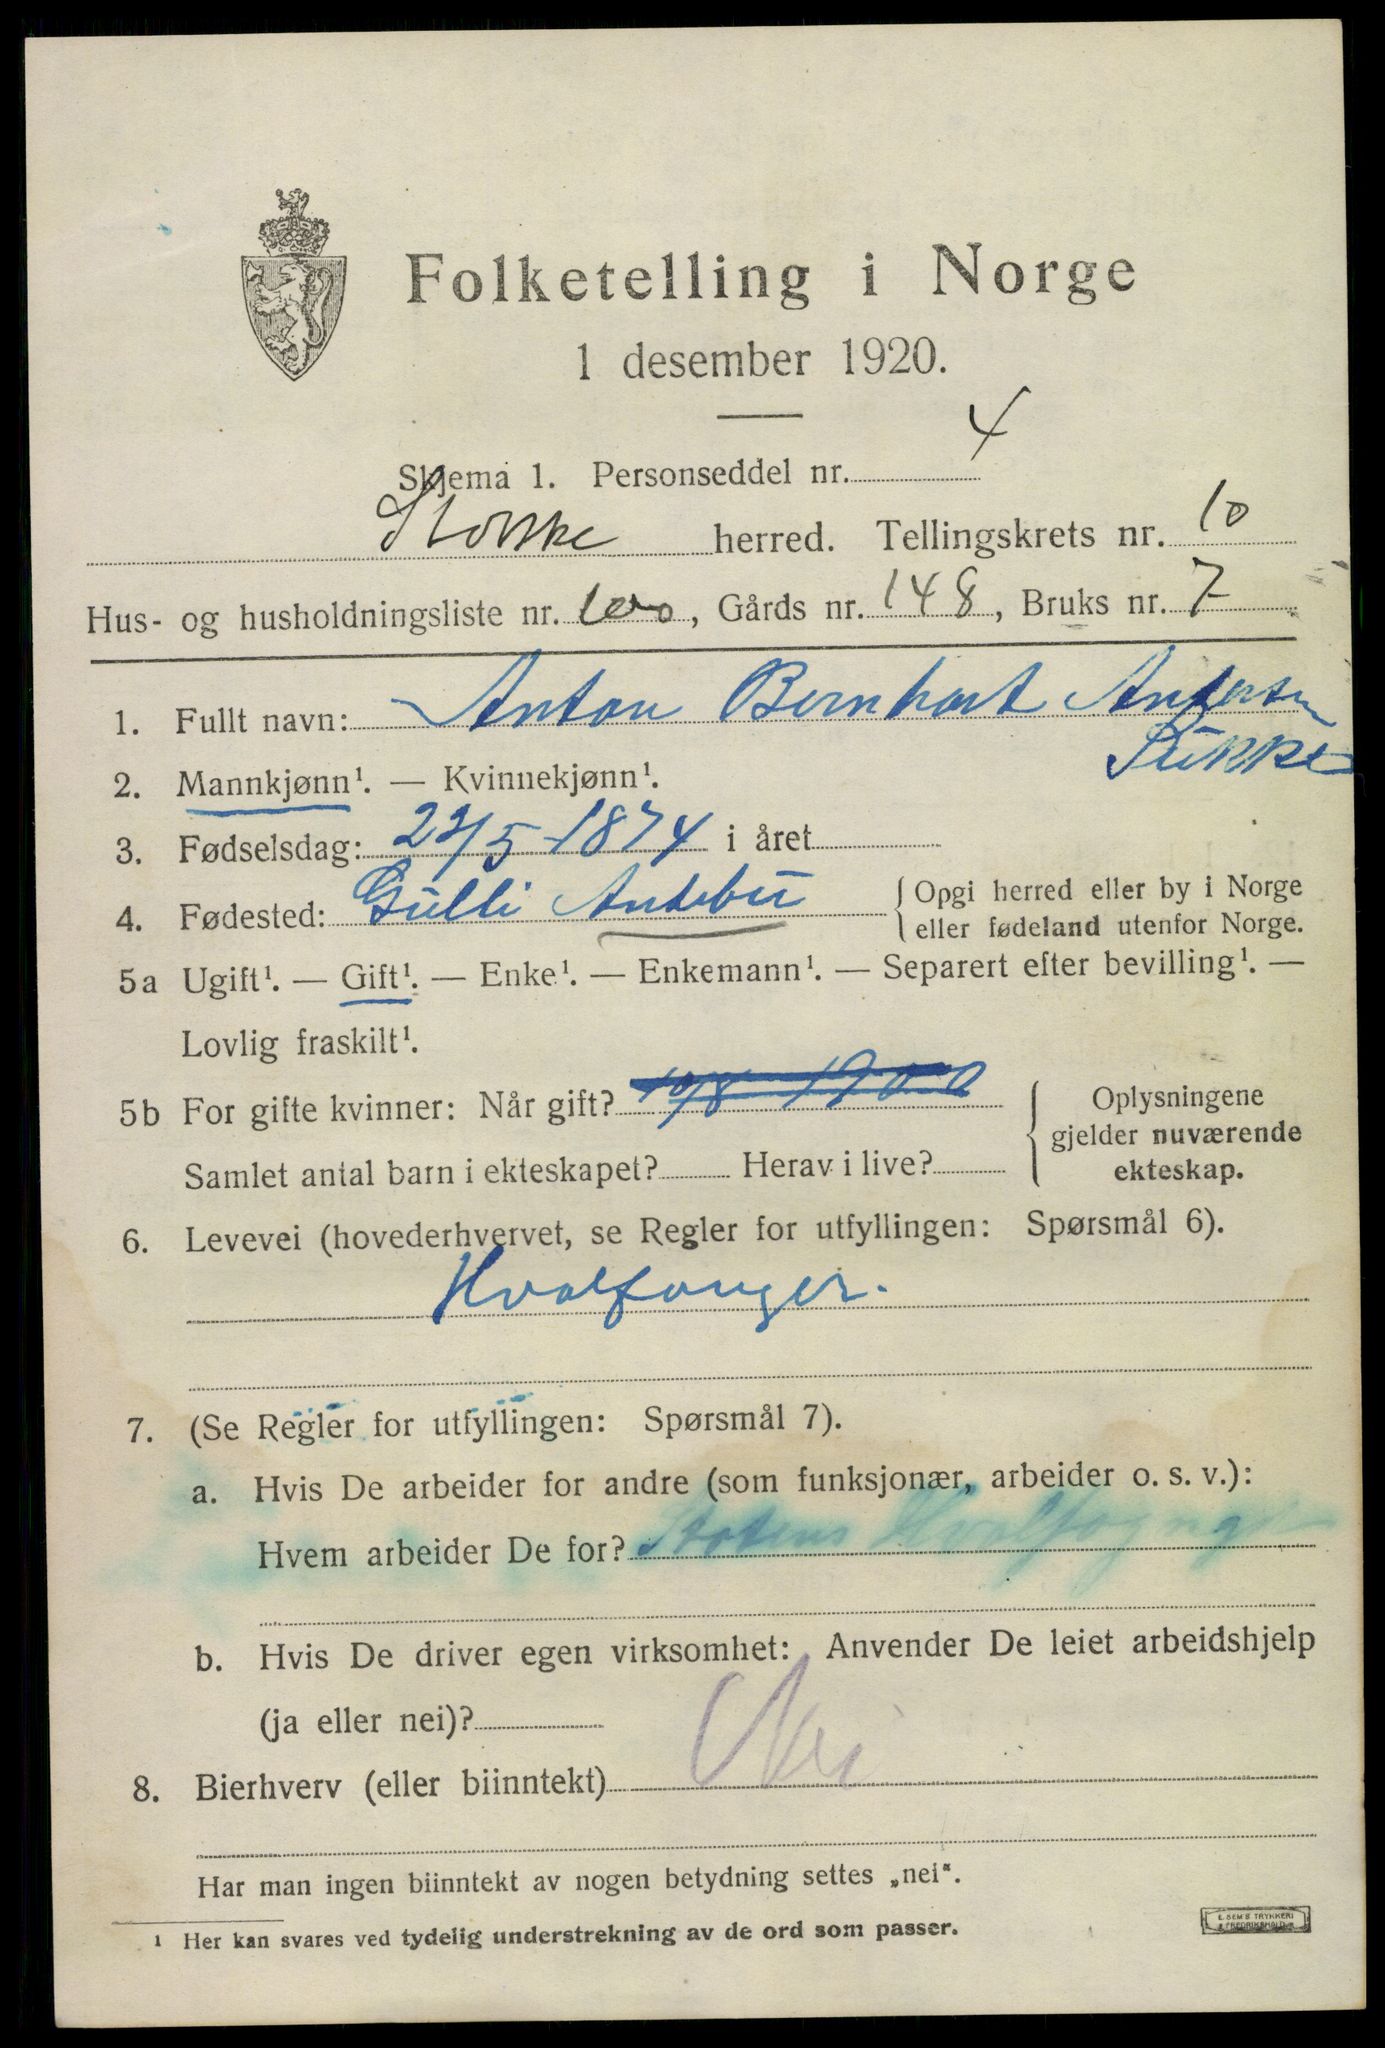 Folketelling i Norge
1 desember 1920.
Skjema 1. Personseddel nr. 4
Stokke herred. Tellingskrets nr. 10
Hus- og husholdningsliste nr. 100, Gårds nr. 148, Bruks nr. 7
1. Fullt navn: Anton Bernhart Andersen
2. Mannkjønn¹. — Kvinnekjønn¹.
3. Fødselsdag: 22/5-1874 i året
4. Fødested: Gulli Andebu { Opgi herred eller by i Norge
eller fødeland utenfor Norge.
5a Ugift¹. — Gift¹. — Enke¹. — Enkemann¹. — Separert efter bevilling¹. —
Lovlig fraskilt¹.
5b For gifte kvinner: Når gift? 10/8 1900
Samlet antal barn i ekteskapet? Herav i live?
{ Oplysningene
gjelder nuværende
ekteskap.
6. Levevei (hovederhvervet, se Regler for utfyllingen: Spørsmål 6).
Hvalfanger.
7. (Se Regler for utfyllingen: Spørsmål 7).
a. Hvis De arbeider for andre (som funksjonær, arbeider o. s. v.):
Hvem arbeider De for?
b. Hvis De driver egen virksomhet: Anvender De leiet arbeidshjelp
(ja eller nei)?
8. Bierhverv (eller biinntekt) Nei
Har man ingen biinntekt av nogen betydning settes „nei“.
¹ Her kan svares ved tydelig understrekning av de ord som passer.
E. SEM'S TRYKKERI
FREDRIKSHALD